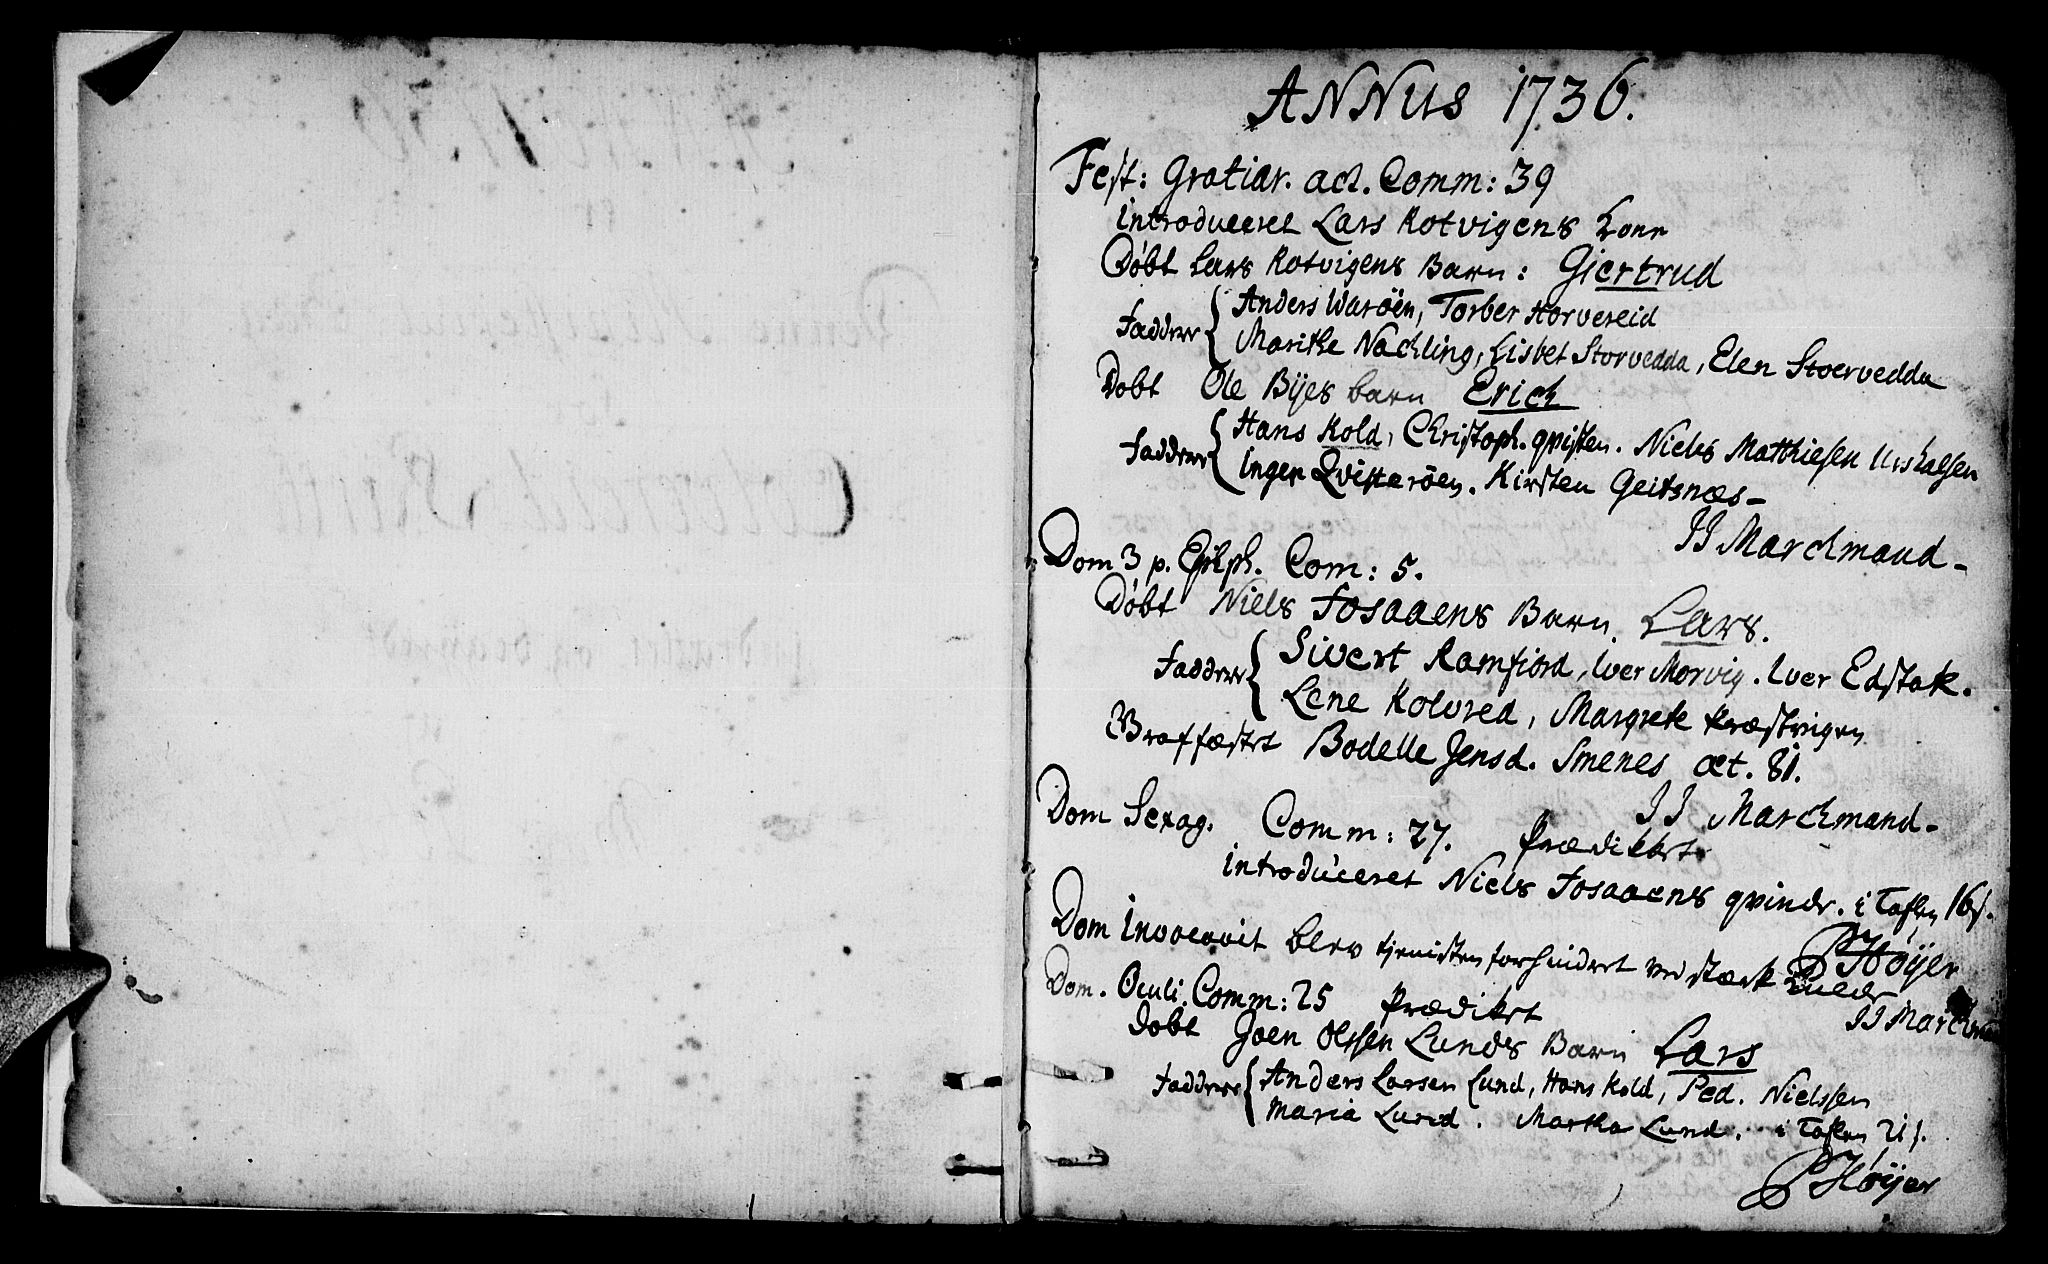 ANNUS 1736.
Fest: Gratiar. act. Comm: 39
introduceret Lars Rotvigens kone
Døbt Lars Rotvigens Barn: Giertrud
Faddere Anders Warøen, Torber Horvereid
Marithe Nachling, Lisbet Storvedda, Elen Stoervedda
Døbt Ole Byes barn Erich
Faddere Hans Kold, Christoph. qvisten. Niels Matthiesen
inger Qvisterøen. Kirsten Geitsnæs
II Marchmand
Dom 3 p. Epiph. Com: 5.
Døbt Niels Fosaaens Barn. Lars.
Faddere Sivert Ramfiord, Iver Morvig. Iver Edstak.
Lene Kolvred, Margrete Præstvigen
Graffæstet Bodelle Jensd. Smenes æt. 81.
II Marchmand
Dom Sexag. Comm: 27. Prædiket
introduceret Niels Fosaaens qvinde. i Taflen 16 s.
PHøyer
Dom Invocavit blev tjenisten forhindret ved stærk kulde
II Marchmand
Dom. Oculi. Comm: 25 Prædiket
Døbt Joen Olssen Lunds Barn Lars
Faddere Anders Larsen Lund, Hans Kold, Ped. Nielssen
Maria Lund. Martha Lund. i Taflen 21 s.
PHøyer